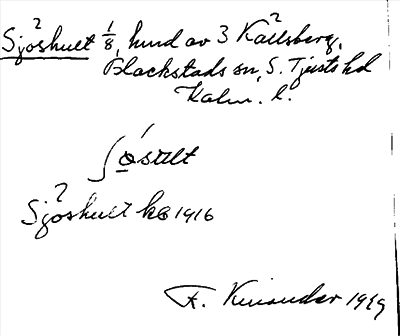 Sjöshult 1/8, hmd av 3 Kallsberg,
Blackstads sn, S. Tjusts hd
Kalm. l.
ʃø̀sɯlt
Sjöshult kb 1916
F. Kinander 1929